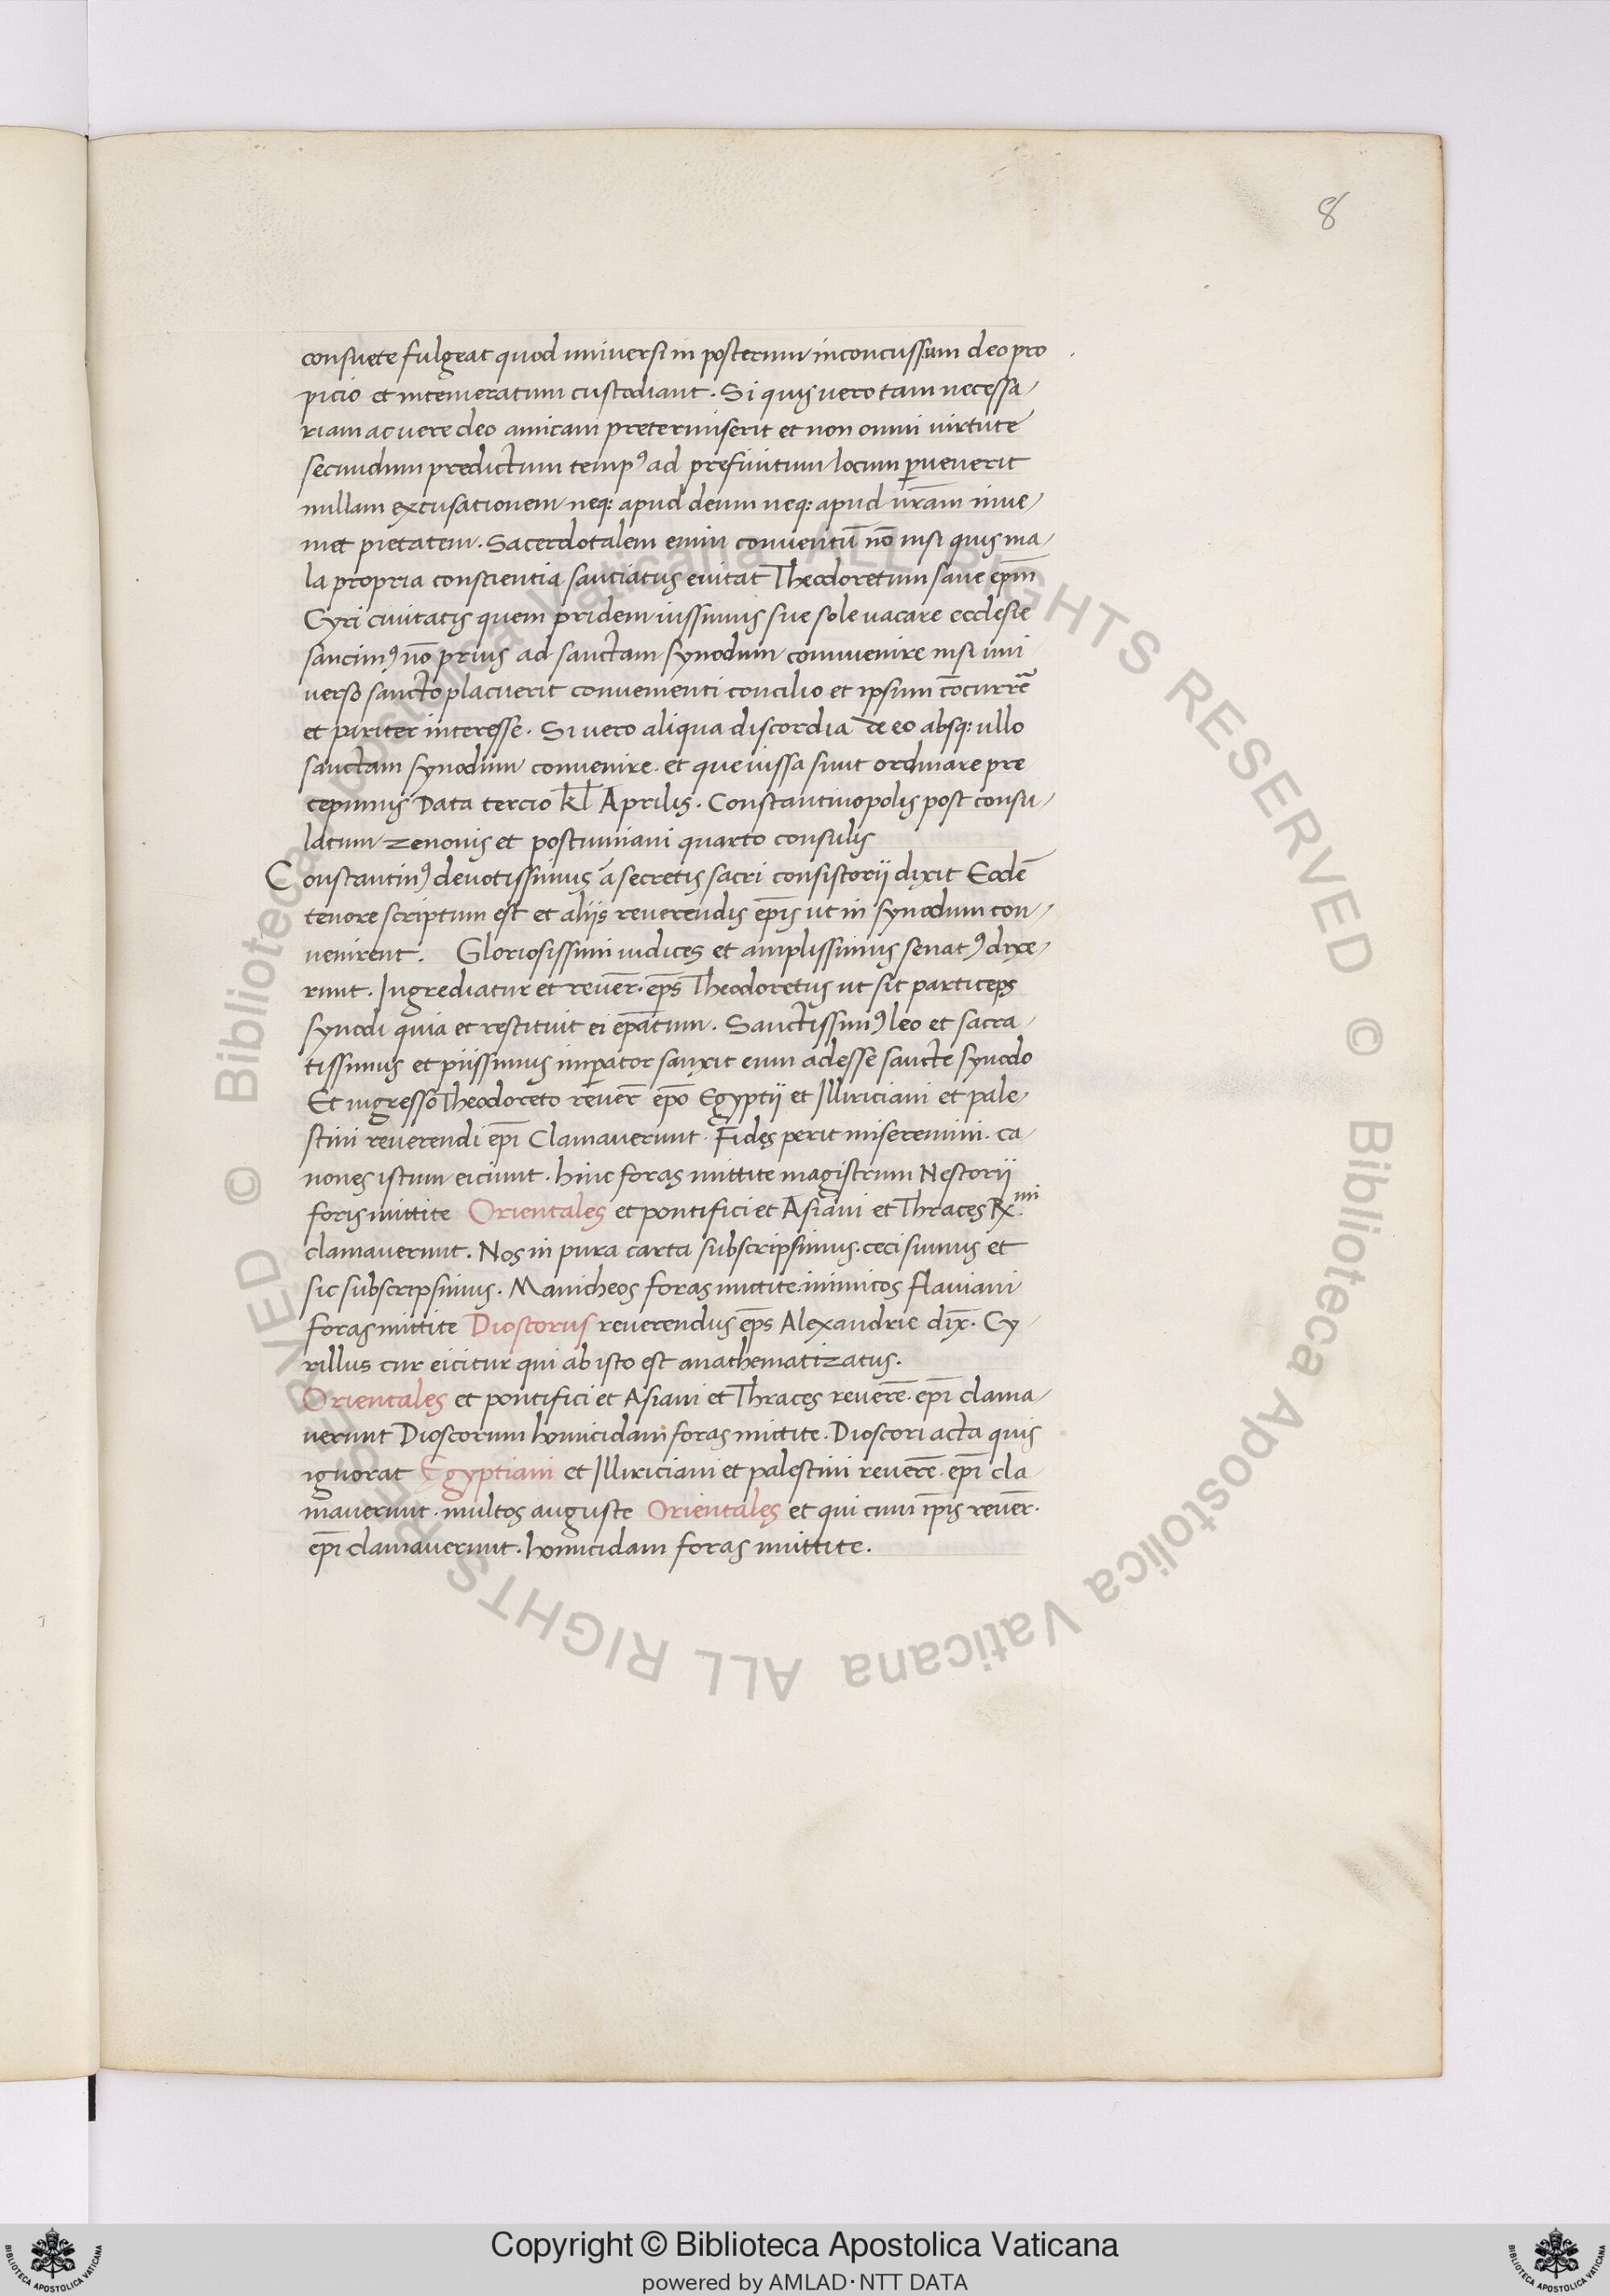 8
consuete fulgeat quod universi in posterum inconcussum deo pro
picio et intemeratum custodiant. Si quis vero tam necessa-
riam ac vere deo amicam pretermiserit et non omni virtute
secundum predictum tempꝰ ad prefinitum locum ꝑvenerit
nullam excusationem neq: apud deum neq: apud vr̄am inve-
niet pietatem. Sacerdotalem enim conventū nō nisi quis ma-
la propria conscientia sauciatus evitat Theodoretum sane ep̄m
Cyri civitatis quem pridem iussimus sue sole vacare ecclesie
sancimꝰ nō prius ad sanctam synodum convenire nisi uni
verso sancto placuerit convenienti concilio et ipsum cōcurrē
et pariter interesse. Si vero aliqua discordia de eo absq: ullo
sanctam synodum convenire. et que iussa sunt ordinare pre
cepimus Data tercio kl̄ Aprilis. Constantinopolis post consu-
latum zenonis et postumiani quarto consulis
Constantinꝰ devotissimus a secretis sacri consistorii dixit Eodē
tenore scriptum est et aliis reverendis ep̄is ut in synodum con-
venirent. Gloriosissimi iudices et amplissimus senatꝰ dixe-
runt. Ingrediatur et rever̄. ep̄s Theodoretus ut sit particeps
synodi quia et restituit ei ep̄atum. Sanctissimꝰ leo et sacra-
tissimus et piissimus imꝑator sanxit eum adesse sancte synodo
Et ingresso Theodoreto rever̄ ep̄o Egyptii et Illiriciani et pale-
stini reverendi ep̄i Clamaverunt. Fides perit miseremini. ca-
nones istum eiciunt. hinc foras mittite magistrum Nestorii
foris mittite Orientales et pontifici et Asiani et Thraces Rx.mi
clamaverunt. Nos in pura carta subscripsimus. ceci sumus et
sic subscripsimus. Manicheos foras mittite. inimicos flaviani
foras mittite Dioscorus reverendus ep̄s Alexandrie dix̄. Cy-
rillus cur eicitur qui ab isto est anathematizatus.
Orientales et pontifici et Asiani et Thraces reverē. ep̄i clama-
verunt Dioscorum homicidam foras mittite. Dioscori acta quis
ignorat Egyptiani et Illiriciani et palestini reverē. ep̄i cla-
maverunt. multos auguste Orientales et qui cum ip̄is rever̄.
ep̄i clamaverunt. homicidam foras mittite.
© Biblioteca Apostolica Vaticana ALL RIGHTS RESERVED © Biblioteca Apostolica Vaticana ALL RIGHTS RESERVED
Copyright © Biblioteca Apostolica Vaticana
powered by AMLAD·NTT DATA
BIBLIOTECA APOSTOLICA VATICANA
BIBLIOTECA APOSTOLICA VATICANA